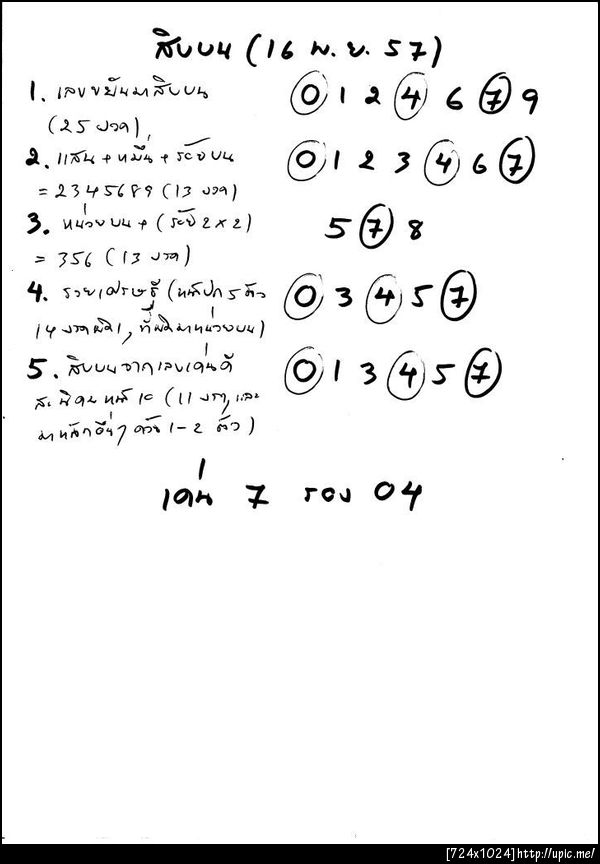 สิบบน (16 พ.ย. 57)
1. เลขขยันมาสิบบน 0 1 2 4 6 7 9
(25 งวด)
2. แสน + หมื่น + ร้อยบน 0 1 2 3 4 6 7
= 2345689 (13 งวด)
3. หน่วยบน + (ร้อย 2x2) 5 7 8
= 356 (13 งวด)
4. รวยเศรษฐี (หน้าปก 5 ตัว 0 3 4 5 7
14 งวดผิด 1, ที่ผิดมาหน่วยบน)
5. สิบบนจากเลขเด่นดี 0 1 3 4 5 7
หน้า 10 (11 งวด, และ
มาหลักอื่นๆ ด้วย 1-2 ตัว)
เด่น 7 รอง 04
[724x1024]http://upic.me/